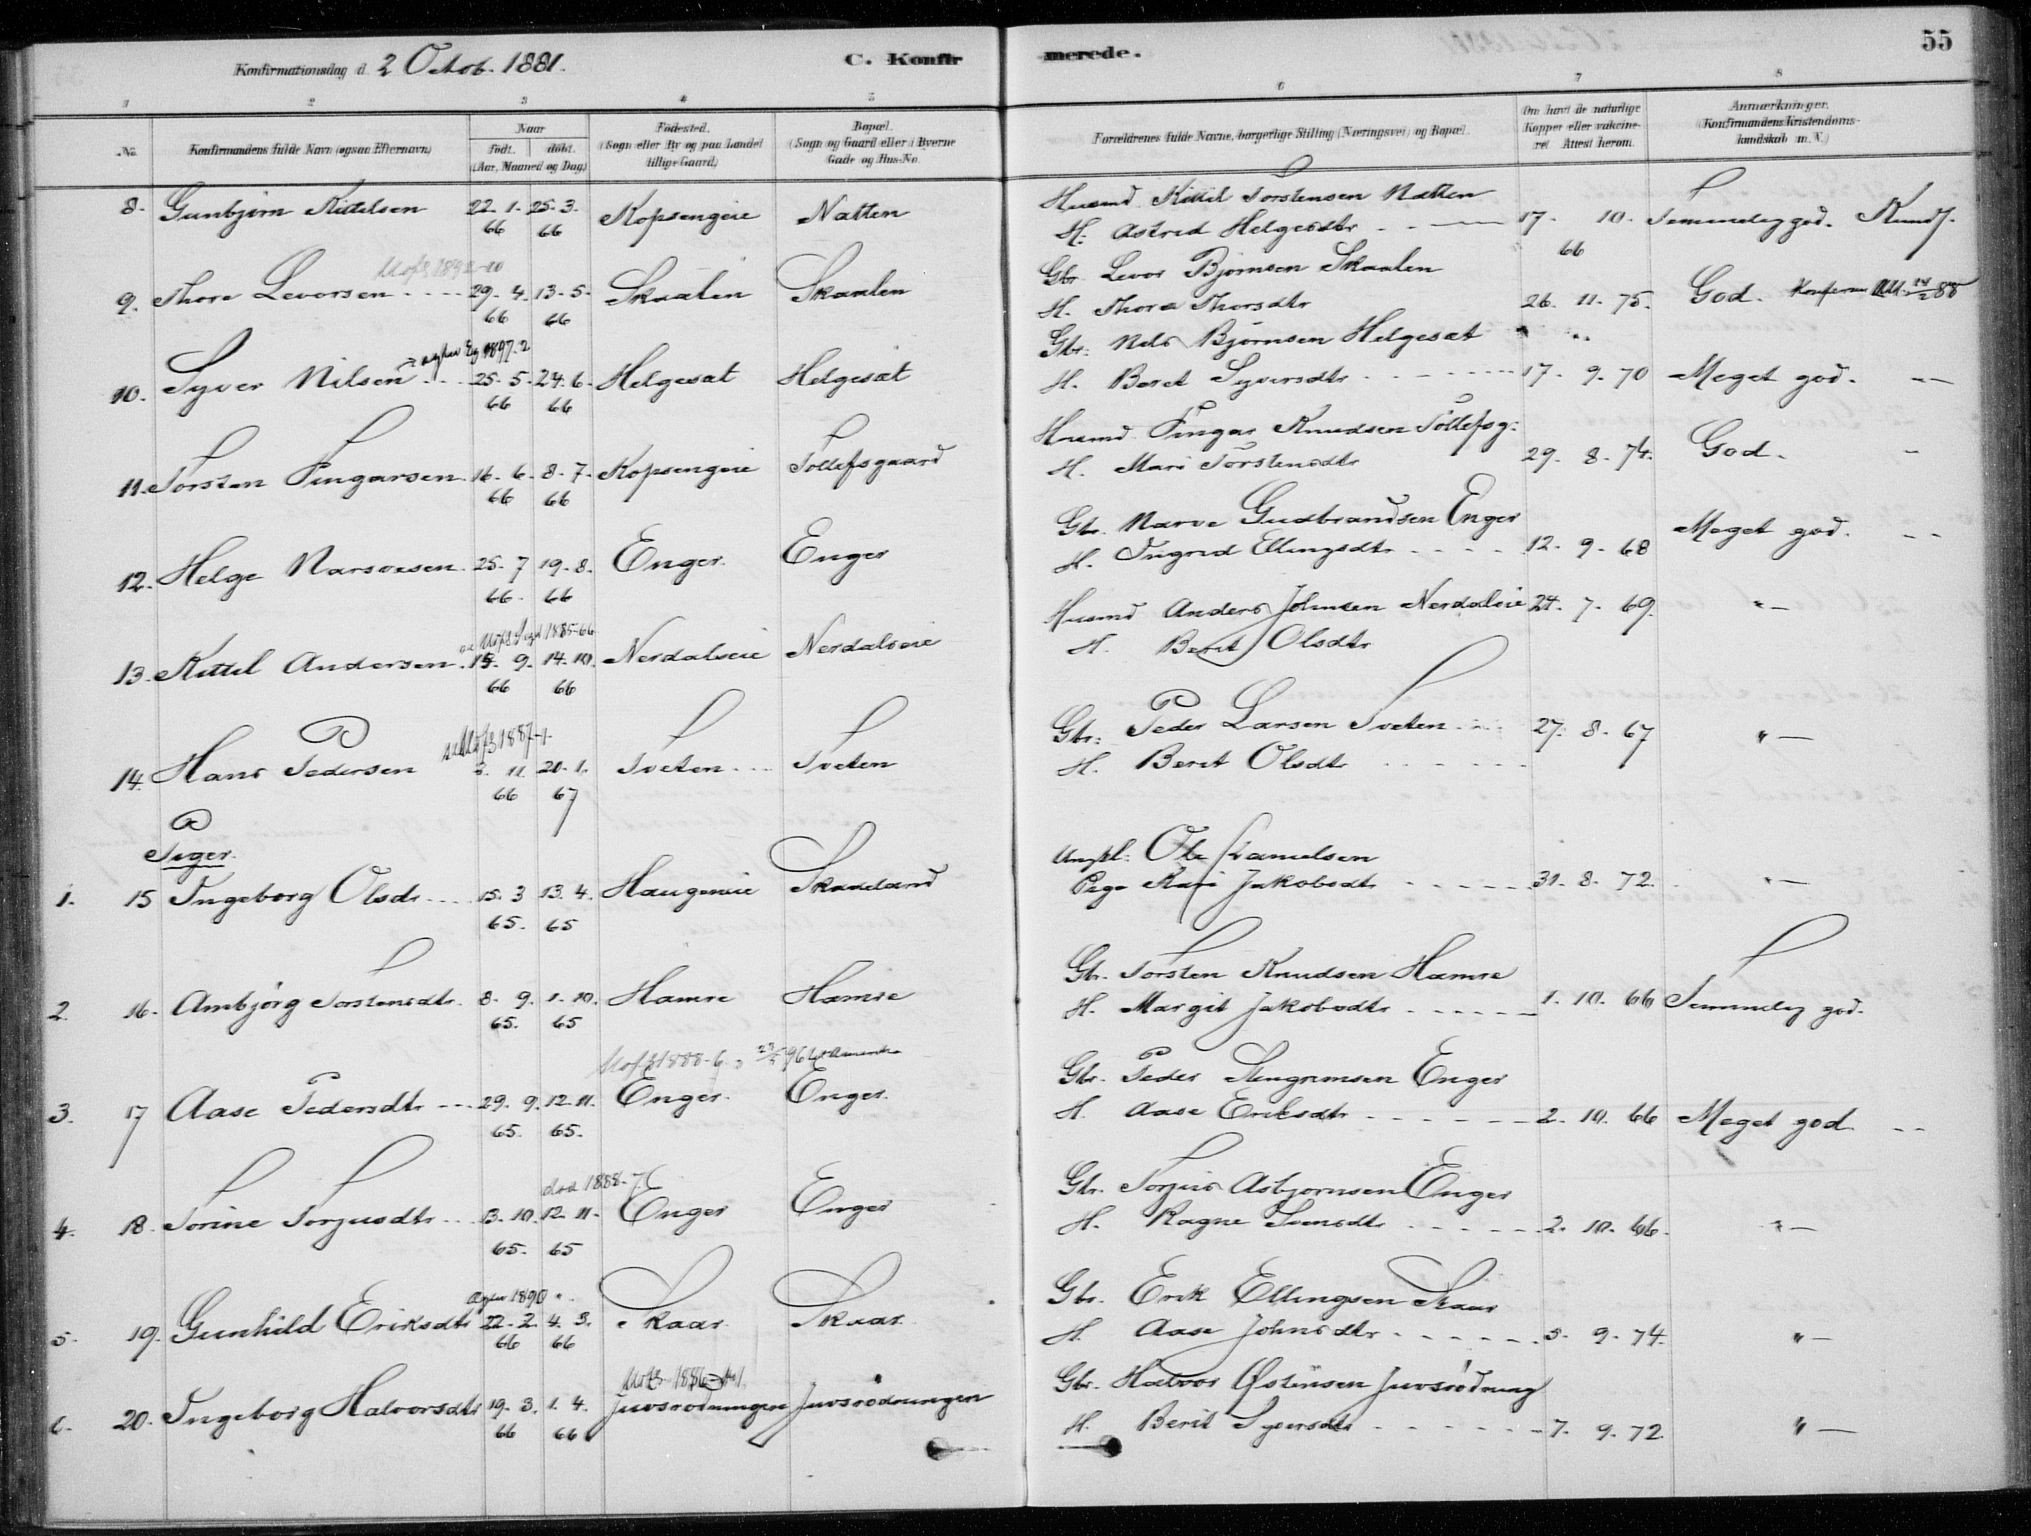 55
Konfirmationsdag d. 2 Octob. 1881.
C. Konfirmerede.
1 2 3 4 5 6 7 8
No. Konfirmandens fulde Navn (ogsaa Efternavn) Naar Født. døbt. (Aar, Maaned og Dag) Fødested. (Sogn eller By og paa Landet tillige Gaard) Bopæl. (Sogn og Gaard eller i Byerne Gade og Hus-No. Forældrenes fulde Navne, borgerlige Stilling (Næringsvei) og Bopæl. Om havt de naturlige Kopper eller vakcineret. Attest herom. Anmærkninger. (Konfirmandens Kristendomskundskab m. V.)
8. Gunbjørn Kittelsen 22. 1. 25. 3. Kopsengeie Natten Husmd Kittil Torstensen Natten
66 66 H. Astrid Helgesdtr - - 17. 10. Temmelig god. Kundsk.
66
Thore Leversen
9. 29. 4. 13. 5. Skaalen Skaalen Gbr. Levor Bjørnsen Skaalen
66 66 H. Thora Thorsdtr 26. 11. 75. God.
10. Syver Nilsen 25. 5. 24. 6. Helgeset Helgeset Gbr. Nils Bjørnsen Helgeset
66 66 H. Beret Syversdtr 17. 9. 70 Meget god. -
11. Torsten Fingarsen 16. 6. 8. 7. Kopsengeie Tollefsgaard Husmd Fingar Knudsen Tollefsg:
66 66 H. Mari Torstensdtr 29. 8. 74. God. -
12. Helge Narvesen 25. 7 19. 8. Enger Enger Gbr. Narve Gudbrandsen Enger
66. 66 H. Ingrid Ellingsdtr - - - 12. 9. 68 Meget god. - -
13. Kittil Andersen 15. 9. 14. 10. Nerdalseie Nerdalseie Husmd Anders Johnsen Nerdalseie 24. 7. 69. " -
66 66 H. Berit Olsdtr
14. Hans Pedersen 3. 11. 20. 1. Sveten Sveten Gbr: Peder Larsen Sveten 27. 8. 67 " -
66 67 H. Berit Olsdtr
Piger.
1. 15 Ingeborg Olsdr 15. 3 13. 4. Haugeneie Skadeland Ungkl: Ole
65. 65 Pige Kari Jakobsdtr 31. 8. 72. " -
2. 16. Ambjørg Torstensdtr. 8. 9. 1. 10. Hamre Hamre Gbr. Torsten Knudsen Hamre
65. 65 H. Margit Jakobsdtr 1. 10. 66 Temmelig god.
3. 17 Aase Pedersdtr 29. 9. 12. 11. Enger Enger Gbr. Peder Stengrimsen Enger
65. 65. H. Aase Eriksdtr 2. 10. 66 Meget god - -
død 1888-7.
4. 18. Torine Torjusdtr 13. 10. 12. 11. Enger Enger Gbr. Torjus Asbjørnsen Enger
65. 65 H. Ragne Svensdtr 2. 10. 66. " -
5. 19. Gunhild Eriksdtr 22. 2. 4. 3. Skaar Skaar Gbr. Erik Ellingsen Skaar
66 66 H. Aase Johnsdtr 5. 9. 74. " -
6. 20. Ingeborg Halvorsdtr 19. 3. 1. 4. Juvsrødningen Juvsrødningen Gbr. Halvor Østensen Juvsrødning
66 66 H. Berit Syversdtr 7. 9. 72. " -